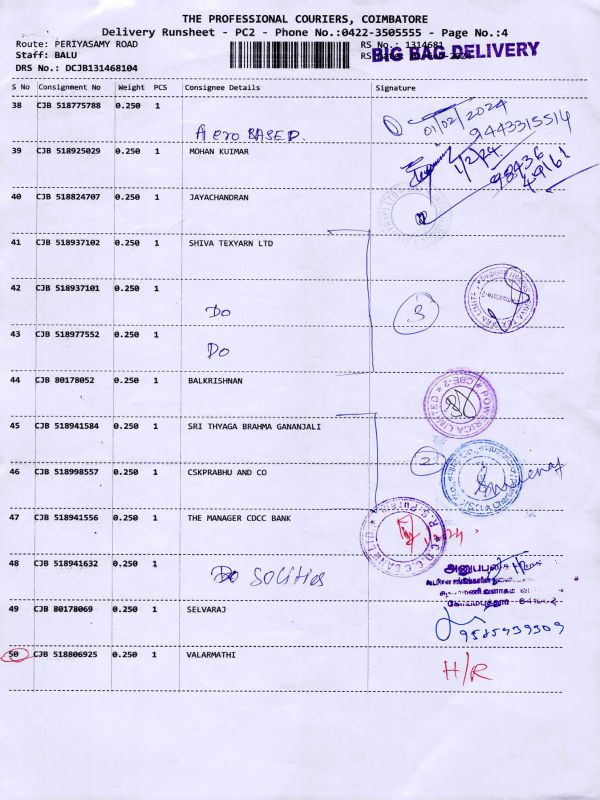 THE PROFESSIONAL COURIERS, COIMBATORE
Delivery Runsheet - PC2 - Phone No.:0422-3505555 - Page No.:4
Route: PERIYASAMY ROAD
Staff: BALU
DRS No.: DCJB131468104
RS No.: 1314681
BIG BAG DELIVERY
S No Consignment No Weight PCS Consignee Details Signature
38 CJB 518775788 0.250 1
Aero BASED.
01/02/2024
9443315514
39 CJB 518925029 0.250 1 MOHAN KUIMAR
1/2/24
98436
49161
40 CJB 518824707 0.250 1 JAYACHANDRAN
41 CJB 518937102 0.250 1 SHIVA TEXYARN LTD
42 CJB 518937101 0.250 1
Do
3
43 CJB 518977552 0.250 1
Do
44 CJB 80178052 0.250 1 BALKRISHNAN
POWERICA LIMITED CBE-2
45 CJB 518941584 0.250 1 SRI THYAGA BRAHMA GANANJALI
2
46 CJB 518998557 0.250 1 CSKPRABHU AND CO
47 CJB 518941556 0.250 1 THE MANAGER CDCC BANK
48 CJB 518941632 0.250 1
Do
49 CJB 80178069 0.250 1 SELVARAJ
50 CJB 518806925 0.250 1 VALARMATHI
H/R